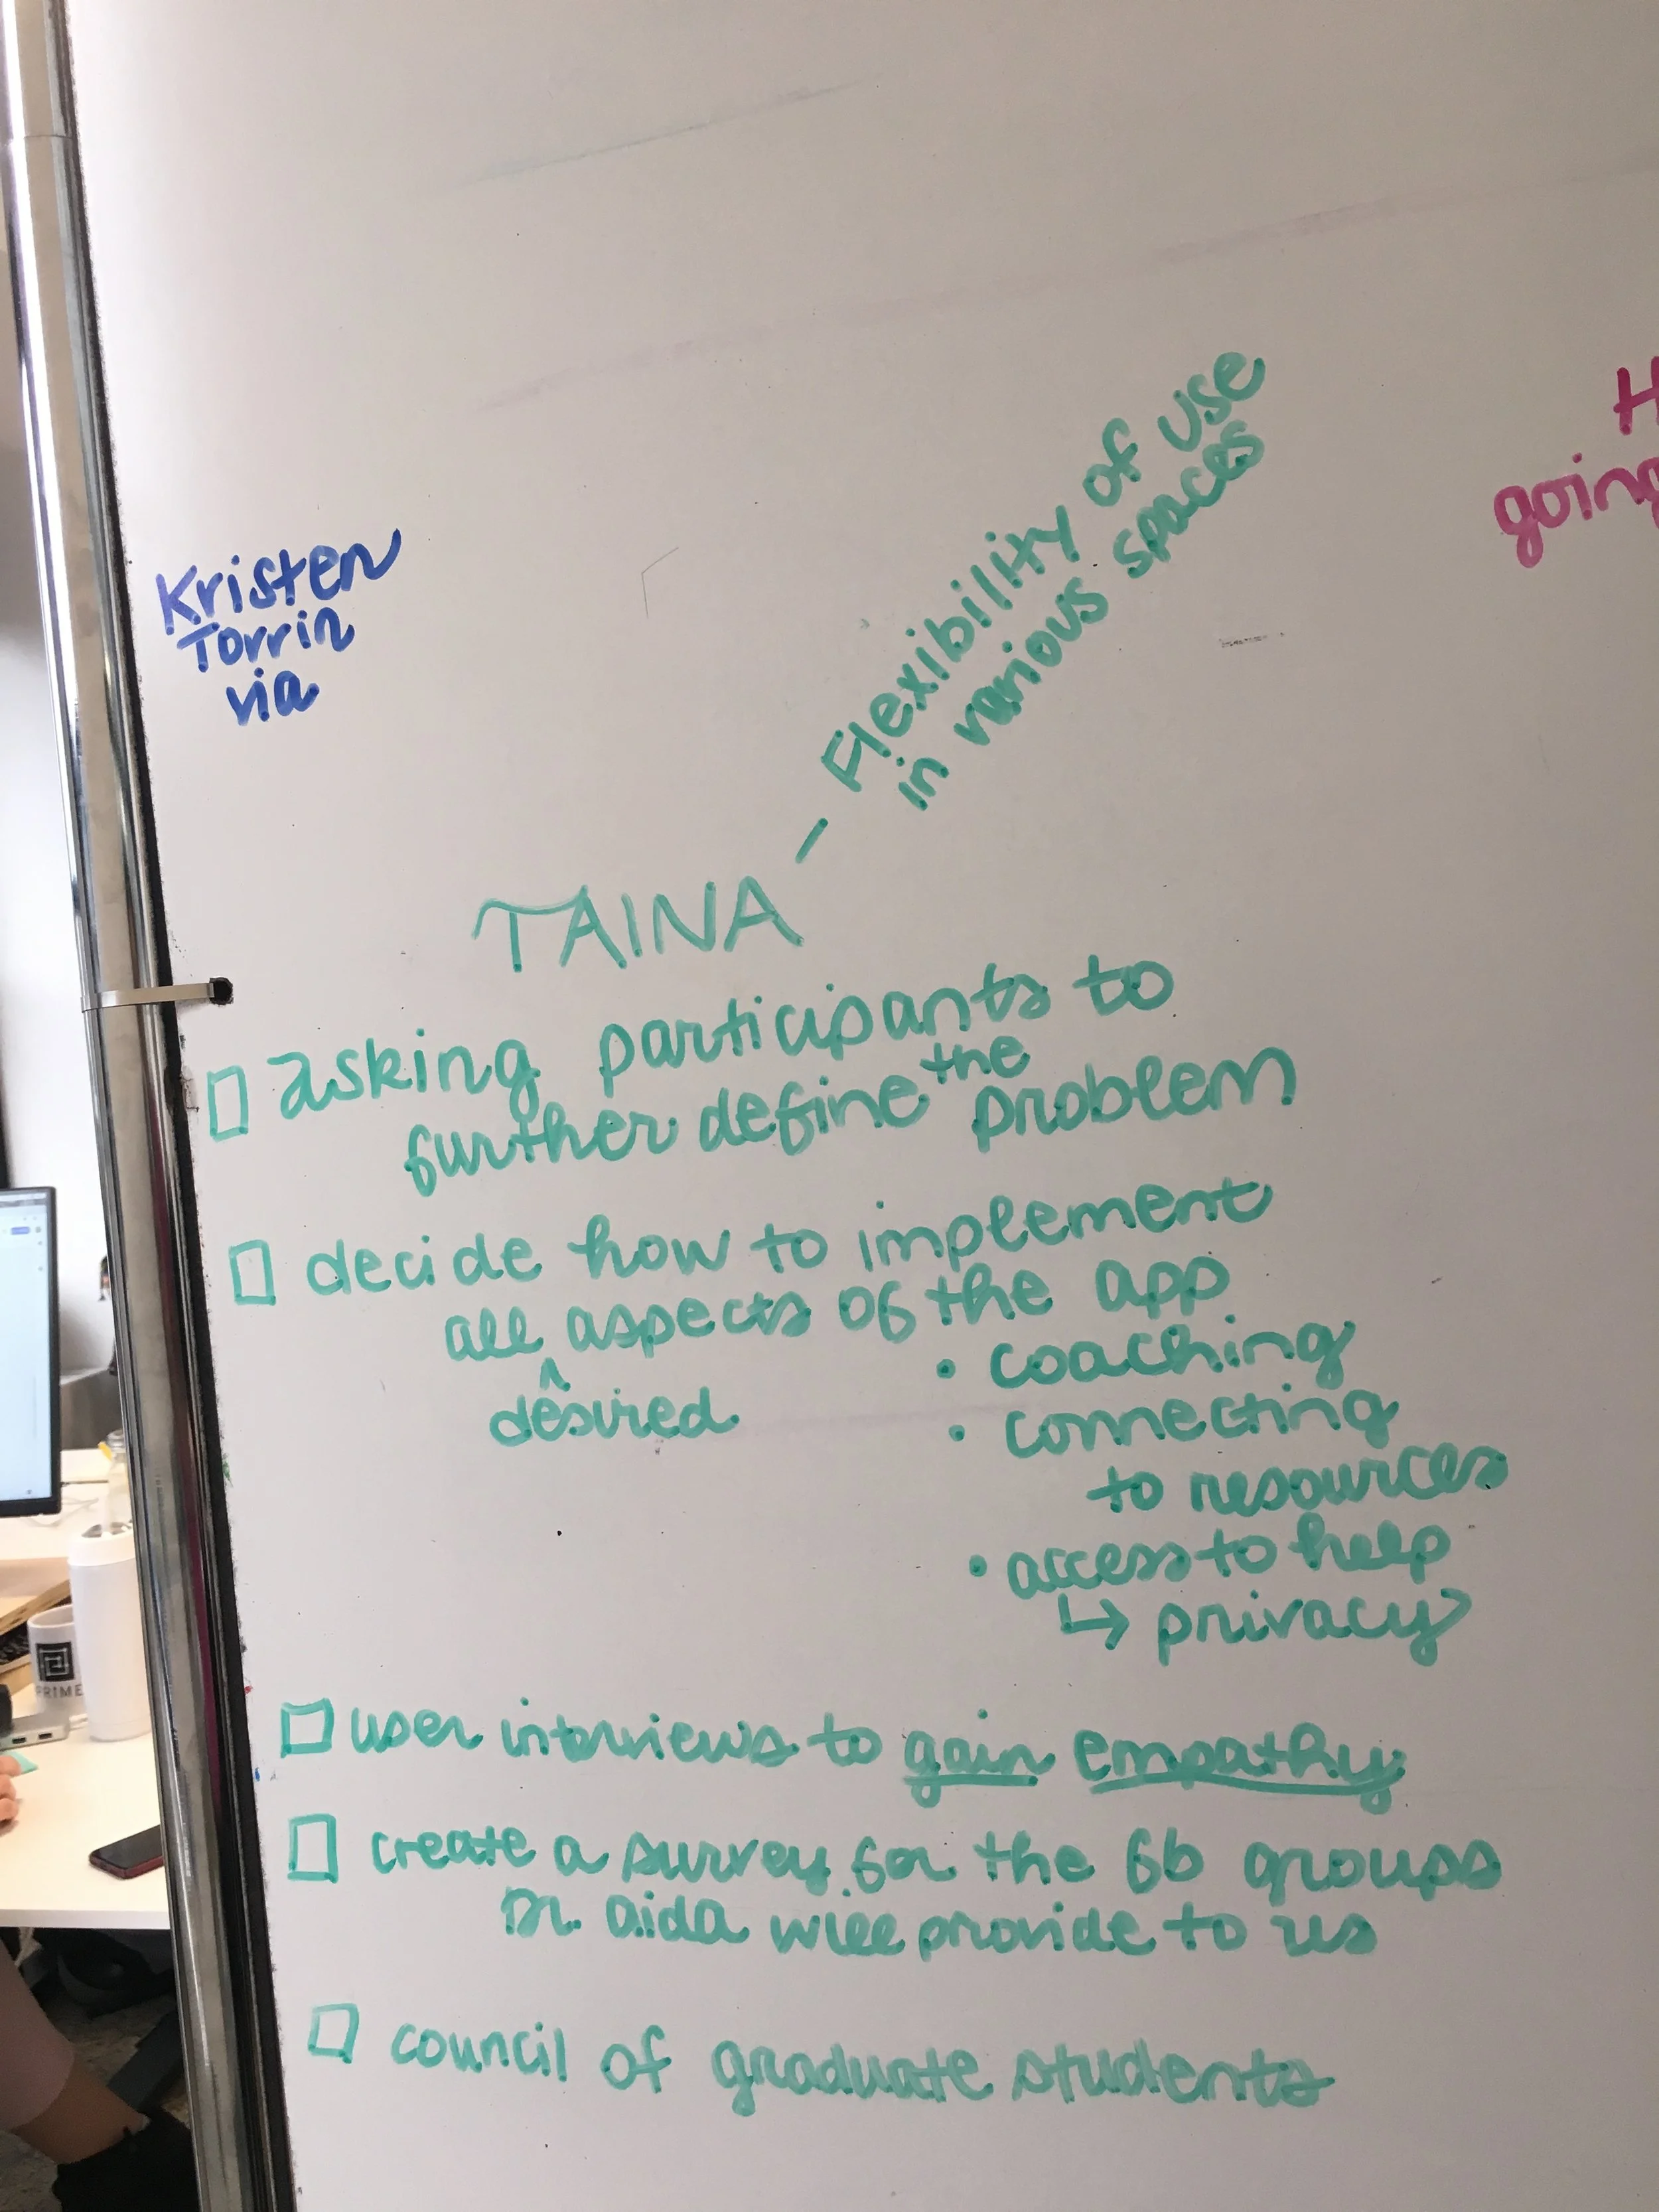 Kristen
Torrin
via
H
going
Flexibility of use
in various spaces
TAINA
asking participants to
further define the problem
decide how to implement
all desired aspects of the app
• coaching
• connecting
to resources
• access to help
↳ privacy
user interviews to gain empathy
create a survey for the fb groups
Dr. aida will provide to us
council of graduate students
PRIME